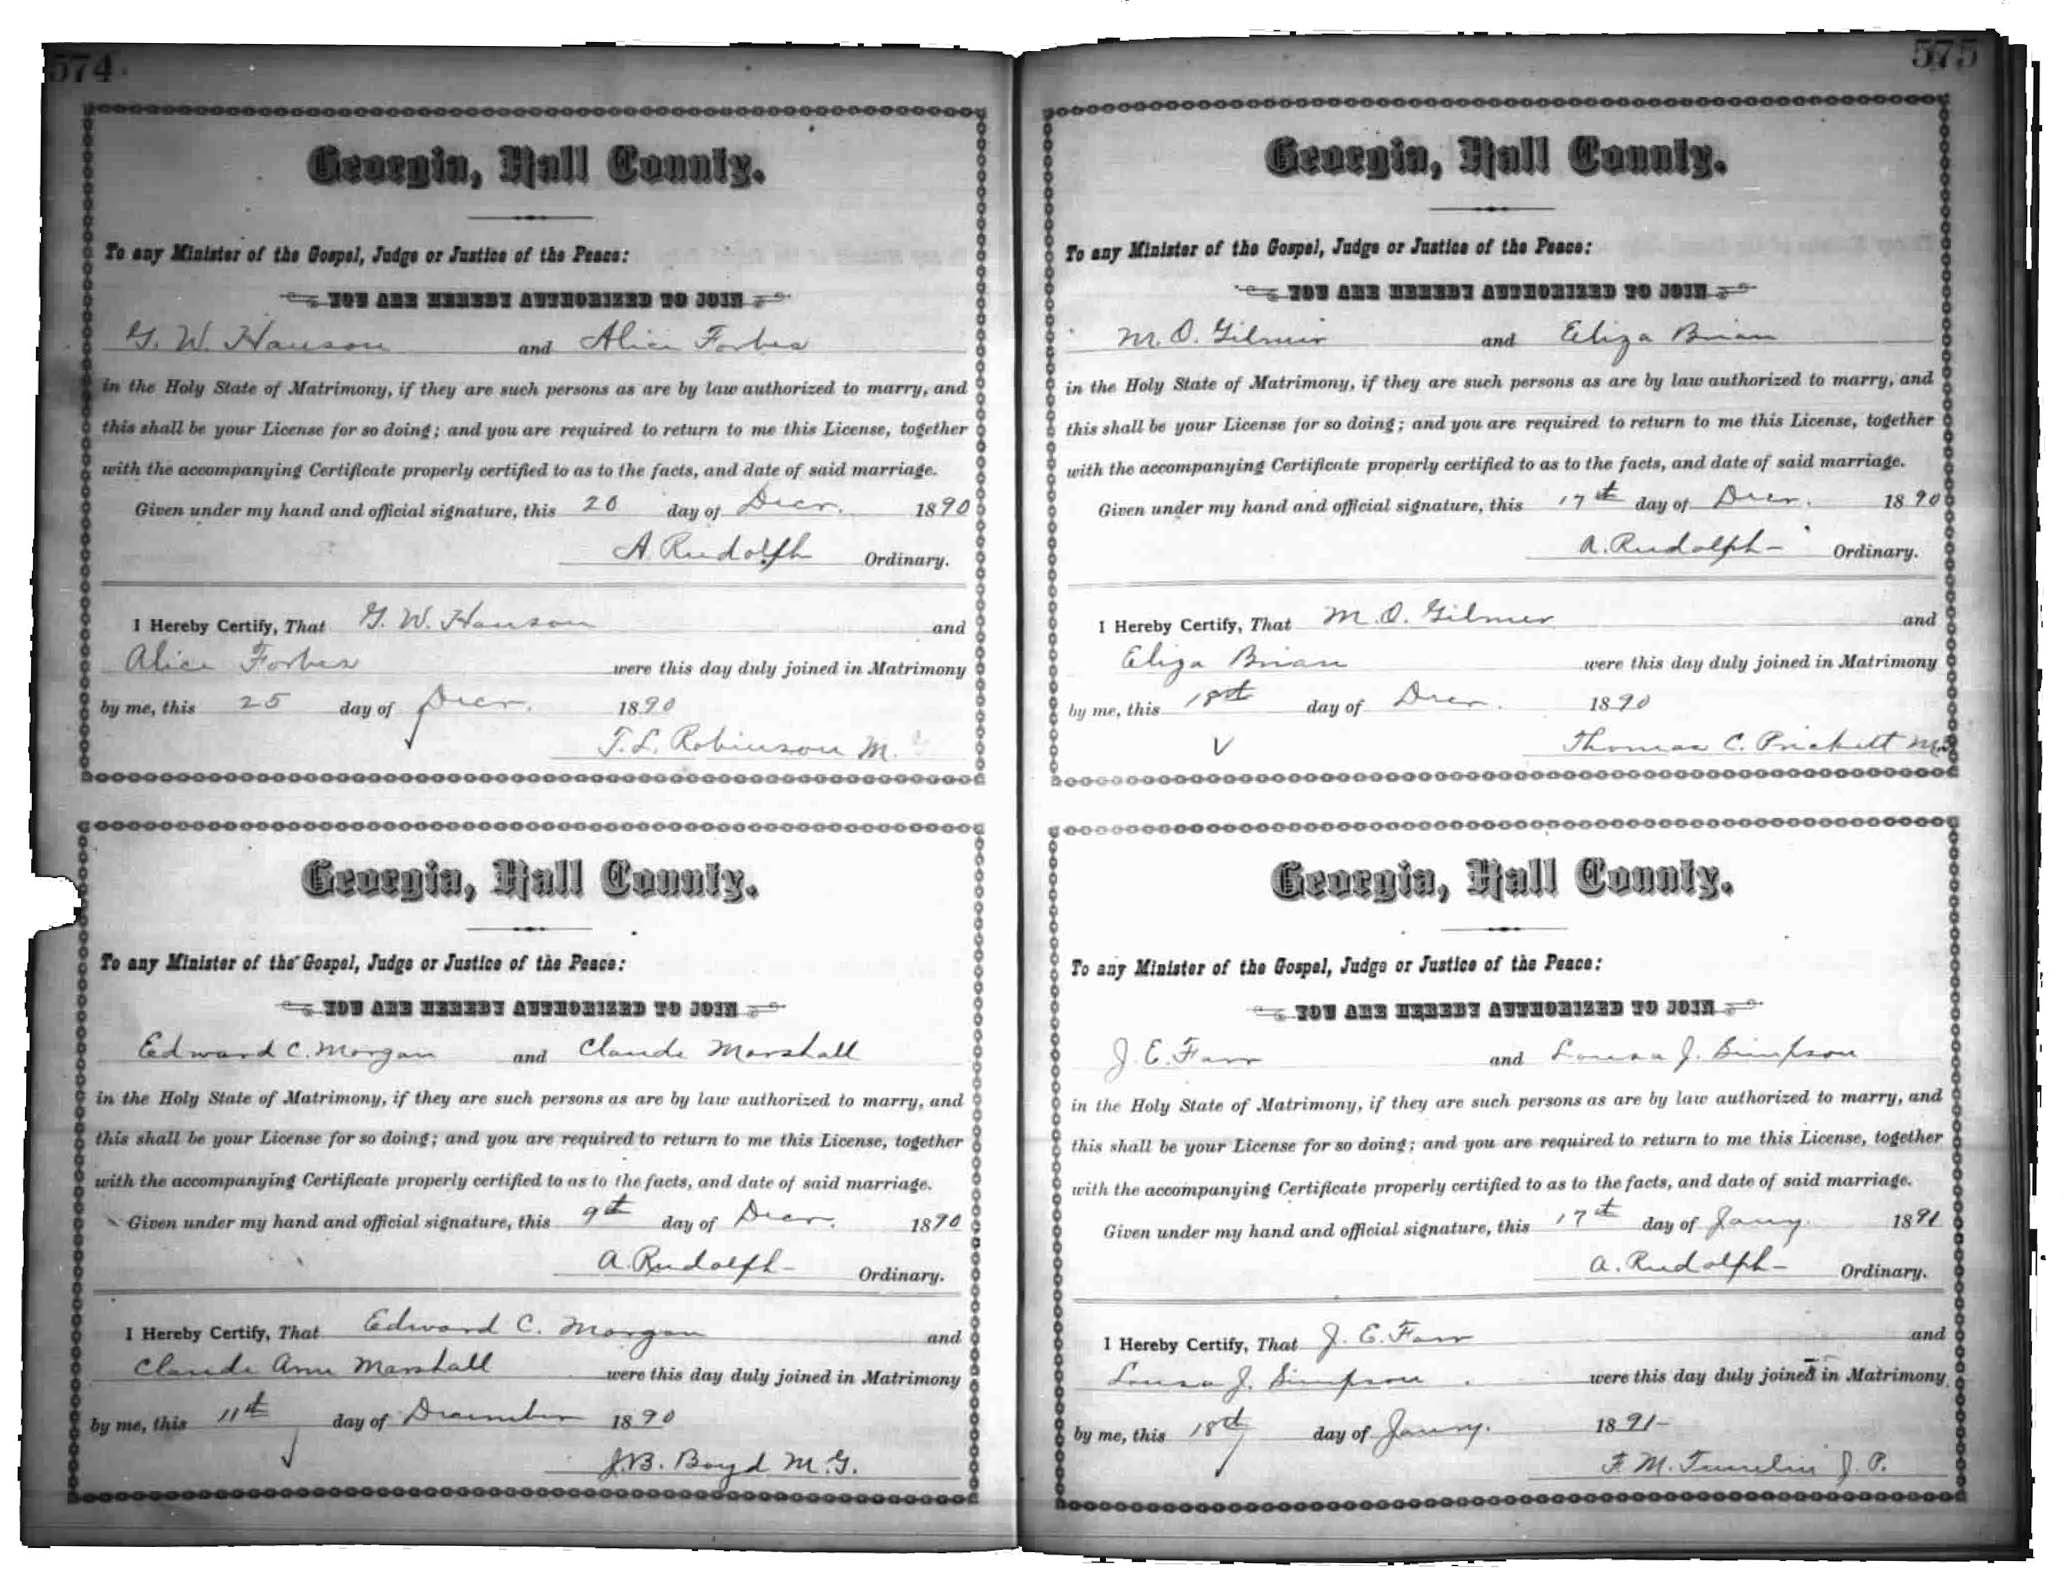 574
Georgia, Hall County.
To any Minister of the Gospel, Judge or Justice of the Peace:
YOU ARE HEREBY AUTHORIZED TO JOIN
G. W. Hanson and Alice Forbes
in the Holy State of Matrimony, if they are such persons as are by law authorized to marry, and
this shall be your License for so doing; and you are required to return to me this License, together
with the accompanying Certificate properly certified to as to the facts, and date of said marriage.
Given under my hand and official signature, this 20 day of Decr. 1890
A. Rudolph Ordinary.
I Hereby Certify, That G. W. Hanson and
Alice Forbes were this day duly joined in Matrimony
by me, this 25 day of Decr. 1890
T. L. Robinson M.
Georgia, Hall County.
To any Minister of the Gospel, Judge or Justice of the Peace:
YOU ARE HEREBY AUTHORIZED TO JOIN
Edward C. Morgan and Claude Marshall
in the Holy State of Matrimony, if they are such persons as are by law authorized to marry, and
this shall be your License for so doing; and you are required to return to me this License, together
with the accompanying Certificate properly certified to as to the facts, and date of said marriage.
Given under my hand and official signature, this 9th day of Decr. 1890
A. Rudolph Ordinary.
I Hereby Certify, That Edward C. Morgan and
Claude Ann Marshall were this day duly joined in Matrimony
by me, this 11th day of December 1890
J.B. Boyd M.G.
575
Georgia, Hall County.
To any Minister of the Gospel, Judge or Justice of the Peace:
YOU ARE HEREBY AUTHORIZED TO JOIN
M. O. Gilmer and Eliza Brian
in the Holy State of Matrimony, if they are such persons as are by law authorized to marry, and
this shall be your License for so doing; and you are required to return to me this License, together
with the accompanying Certificate properly certified to as to the facts, and date of said marriage.
Given under my hand and official signature, this 17th day of Decr. 1890
A. Rudolph Ordinary.
I Hereby Certify, That M. O. Gilmer and
Eliza Brian were this day duly joined in Matrimony
by me, this 18th day of Decr. 1890
Thomas C. Prickett
Georgia, Hall County.
To any Minister of the Gospel, Judge or Justice of the Peace:
YOU ARE HEREBY AUTHORIZED TO JOIN
J. E. Farr and Lousa J. Simpson
in the Holy State of Matrimony, if they are such persons as are by law authorized to marry, and
this shall be your License for so doing; and you are required to return to me this License, together
with the accompanying Certificate properly certified to as to the facts, and date of said marriage.
Given under my hand and official signature, this 17th day of Jany. 1891
A. Rudolph Ordinary.
I Hereby Certify, That J. E. Farr and
Lousa J. Simpson were this day duly joined in Matrimony
by me, this 18th day of Jany. 1891
F. M. Tumlin J. P.